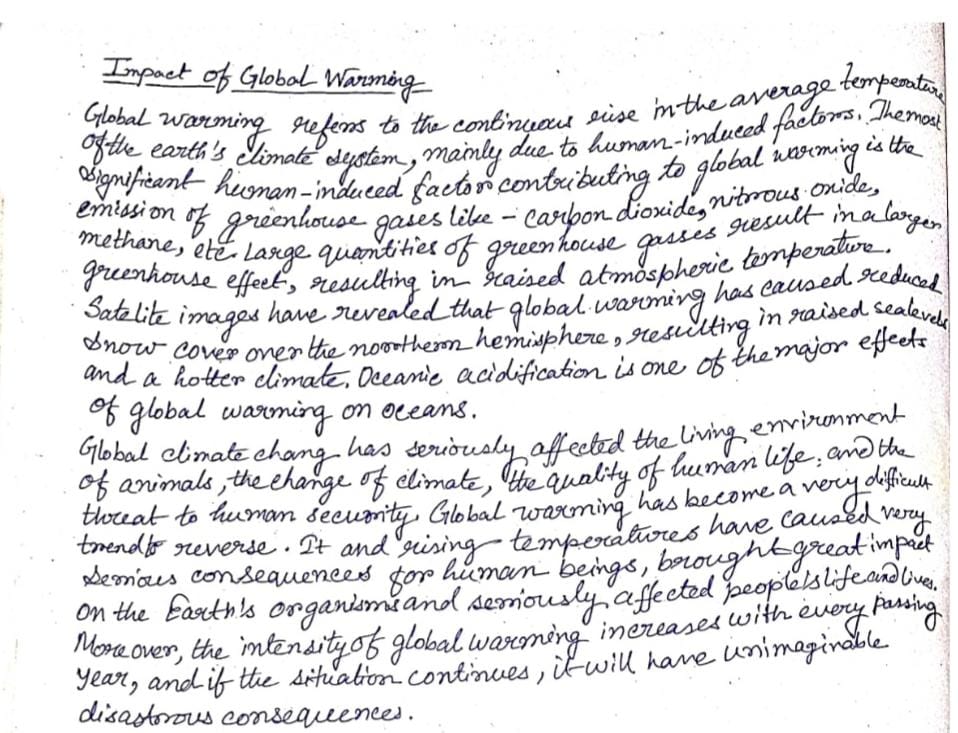 Impact of Global Warming
Global warming refers to the continuous rise in the average temperature
of the earth's climate system, mainly due to human-induced factors. The most
significant human-induced factor contributing to global warming is the
emission of greenhouse gases like - carbon dioxide, nitrous oxide,
methane, etc. Large quantities of greenhouse gasses result in a larger
greenhouse effect, resulting in raised atmospheric temperature.
Satelite images have revealed that global warming has caused reduced
snow cover over the northern hemisphere, resulting in raised sealevels
and a hotter climate. Oceanic acidification is one of the major effects
of global warming on oceans.
Global climate chang has seriously affected the living environment
of animals, the change of climate, the quality of human life, and the
threat to human security. Global warming has become a very difficult
trend to reverse. It and rising temperatures have caused very
serious consequences for human beings, brought great impact
on the Earth's organisms and seriously affected people's life and lives.
Moreover, the intensity of global warming increases with every passing
year, and if the situation continues, it will have unimaginable
disastrous consequences.